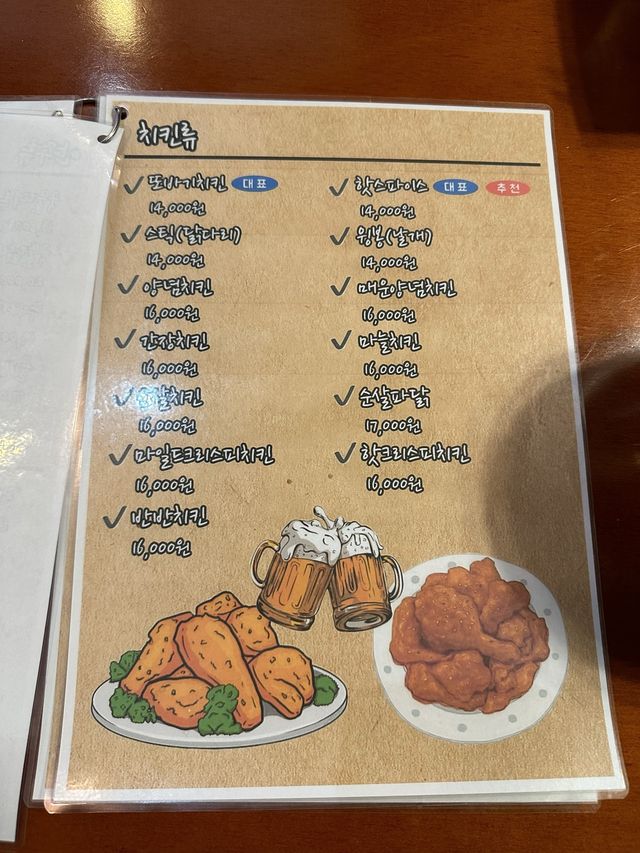 치킨류
또바기치킨 대표
14,000원
스틱(닭다리)
14,000원
양념치킨
16,000원
간장치킨
16,000원
치킨
16,000원
마일드크리스피치킨
16,000원
반반치킨
16,000원
핫스파이스 대표 추천
14,000원
윙봉(날개)
14,000원
매운양념치킨
16,000원
마늘치킨
16,000원
순살파닭
17,000원
핫크리스피치킨
16,000원